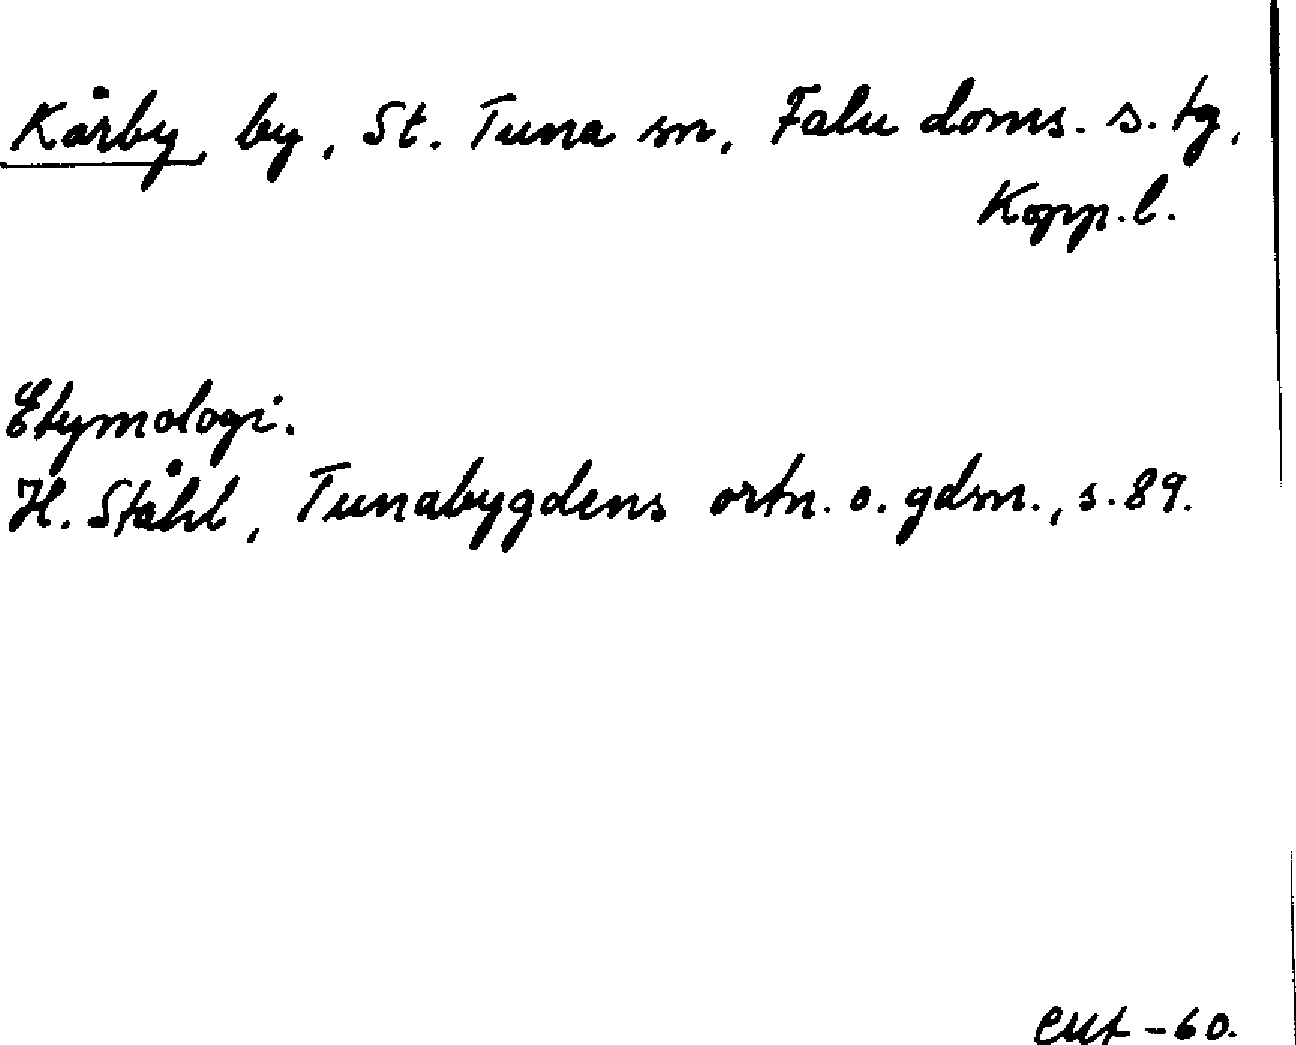 Kårby, by, St. Tuna sn, Falu doms. s. tg,
Kopp. l.
Etymologi.
H. Ståhl, Tunabygdens ortn. o. gdsn., s. 89.
-60.